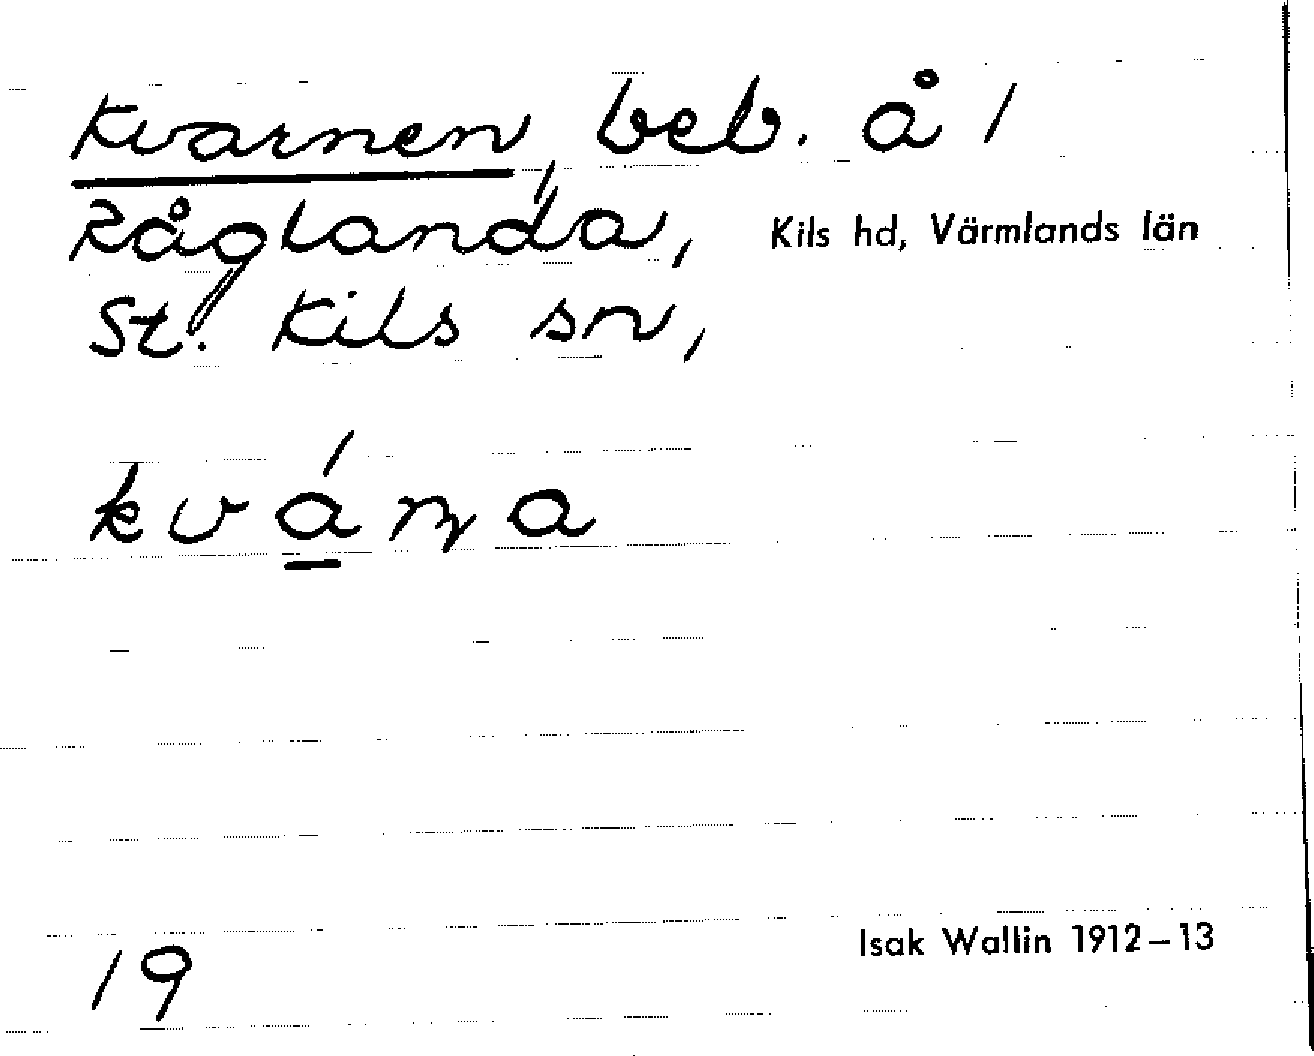 Kvarnen, beb. å 1
Råglanda, Kils hd, Värmlands län
St. Kils sn,
kváɳa
19
Isak Wallin 1912–13